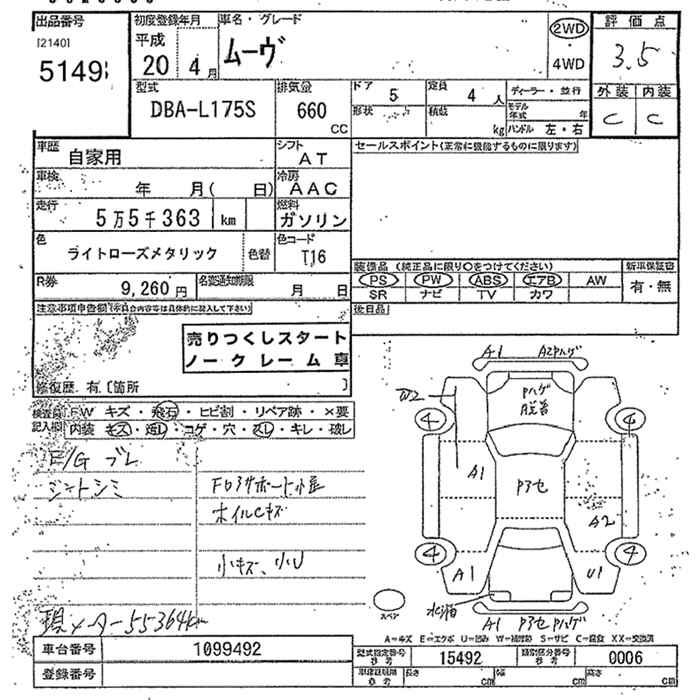 出品番号 初度登録年月 車名・グレード 評価点
[2140] 平成 ムーヴ 2WD 3.5
5149 20 4月 4WD
型式 排気量 ドア 5 定員 4人 ディーラー・並行 外装 内装
DBA-L175S 660 CC 形状 積載 kg モデル年式 年 C C
ハンドル 左・右
車歴 自家用 シフト AT セールスポイント(正常に機能するものに限ります)
車検 年 月( 日) 冷房 AAC
走行 5万5千363 km 燃料 ガソリン
色 ライトローズメタリック 色替 色コード T16
装備品(純正品に限り○をつけてください) 新車保証書
R券 9,260円 名変通知期限 月 日 PS PW ABS エアB AW 有・無
SR ナビ TV カワ
注意事項申告欄 後日品
売りつくしスタート
ノークレーム車
修復歴 有〔箇所 〕
A1 A2Pハゲ
Pハゲ
W2
検査員記入欄 FW キズ・飛石・ヒビ割・リペア跡・×要
内装 キズ・汚レ・コゲ・穴・スレ・キレ・破レ
4 4
E/G ブレ
シートシミ
A1 Pアセ
ホイルCキズ
A2
小キズ、小U
4 4
A1 U1
スペア
現メーター55364km
A1 Pアセ Pハゲ
A=キズ E=エクボ U=凹み W=補修跡 S=サビ C=腐食 XX=交換済
車台番号 1099492 型式指定番号 参考 15492 類別区分番号 参考 0006
登録番号 長さ cm 幅 cm 高さ cm